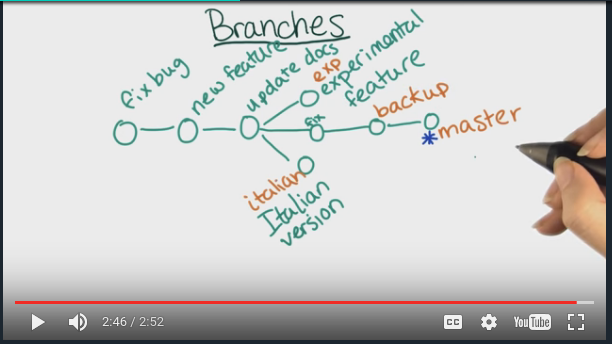 Branches
fix bug
new feature
update docs
exp
experimental
feature
fix
backup
*master
italian
Italian
version
2:46 / 2:52
CC
YouTube